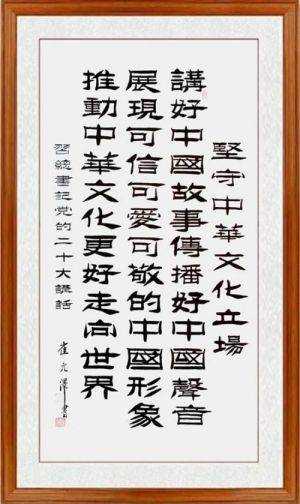 堅守中華文化立場
講好中國故事傳播好中國聲音
展現可信可愛可敬的中國形象
推動中華文化更好走向世界
習總書記党的二十大講話